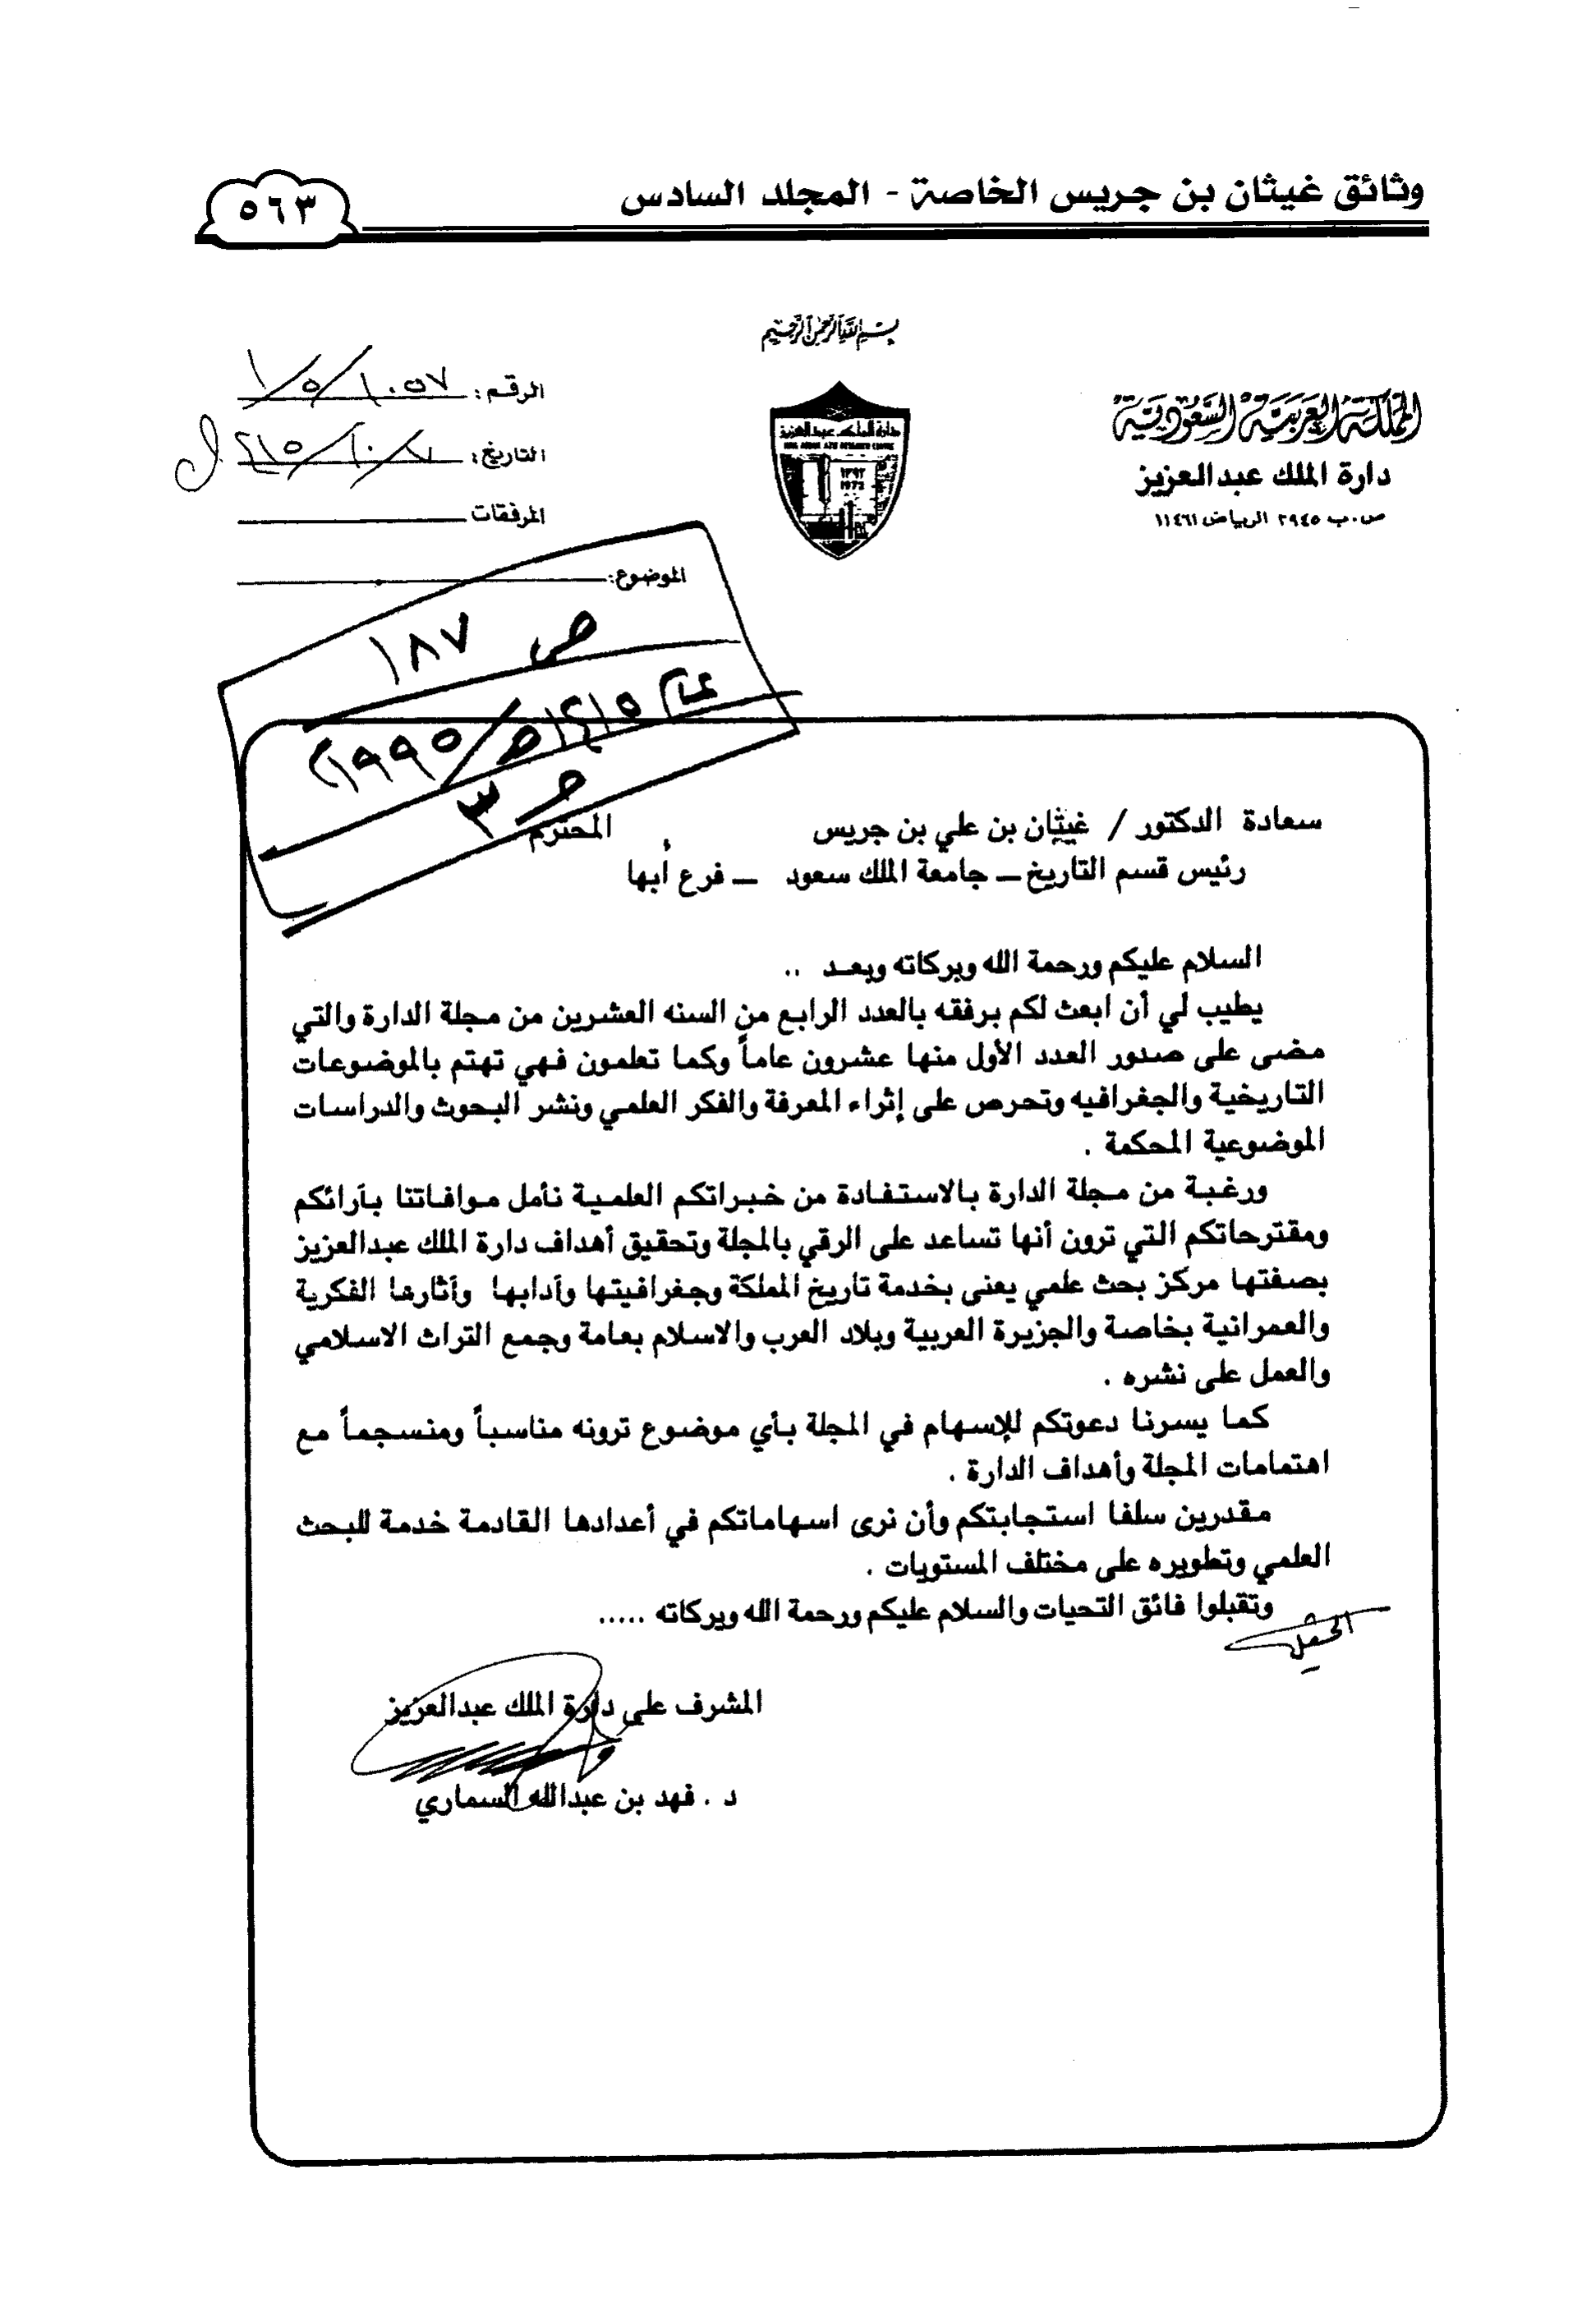 وثائق غيثان بن جريس الخاصة - المجلد السادس
٥٦٣
بسم الله الرحمن الرحيم
المملكة العربية السعودية
دارة الملك عبدالعزيز
ص.ب ٢٩٤٥ الرياض ١١٤٦١
دارة الملك عبدالعزيز
KING ABDUL AZIZ RESEARCH CENTRE
١٣٩٢
1972
الرقم: ١٠٥٧/٥/١
التاريخ:
المرفقات
الموضوع:
ص ١٨٧
عام ١٤١٥هـ/١٩٩٥م
حـ ٣
سعادة الدكتور / غيثان بن علي بن جريس المحترم
رئيس قسم التاريخ ــ جامعة الملك سعود ــ فرع أبها
السلام عليكم ورحمة الله وبركاته وبعد ..
يطيب لي أن ابعث لكم برفقه بالعدد الرابع من السنه العشرين من مجلة الدارة والتي
مضى على صدور العدد الأول منها عشرون عاماً وكما تعلمون فهي تهتم بالموضوعات
التاريخية والجغرافيه وتحرص على إثراء المعرفة والفكر العلمي ونشر البحوث والدراسات
الموضوعية المحكمة .
ورغبة من مجلة الدارة بالاستفادة من خبراتكم العلمية نأمل موافاتنا بآرائكم
ومقترحاتكم التي ترون أنها تساعد على الرقي بالمجلة وتحقيق أهداف دارة الملك عبدالعزيز
بصفتها مركز بحث علمي يعنى بخدمة تاريخ المملكة وجغرافيتها وأدابها وأثارها الفكرية
والعمرانية بخاصة والجزيرة العربية وبلاد العرب والاسلام بعامة وجمع التراث الاسلامي
والعمل على نشره .
كما يسرنا دعوتكم للإسهام في المجلة بأي موضوع ترونه مناسباً ومنسجماً مع
اهتمامات المجلة وأهداف الدارة .
مقدرين سلفا استجابتكم وأن نرى اسهاماتكم في أعدادها القادمة خدمة للبحث
العلمي وتطويره على مختلف المستويات .
وتقبلوا فائق التحيات والسلام عليكم ورحمة الله وبركاته .....
المشرف على دارة الملك عبدالعزيز
د . فهد بن عبدالله السماري